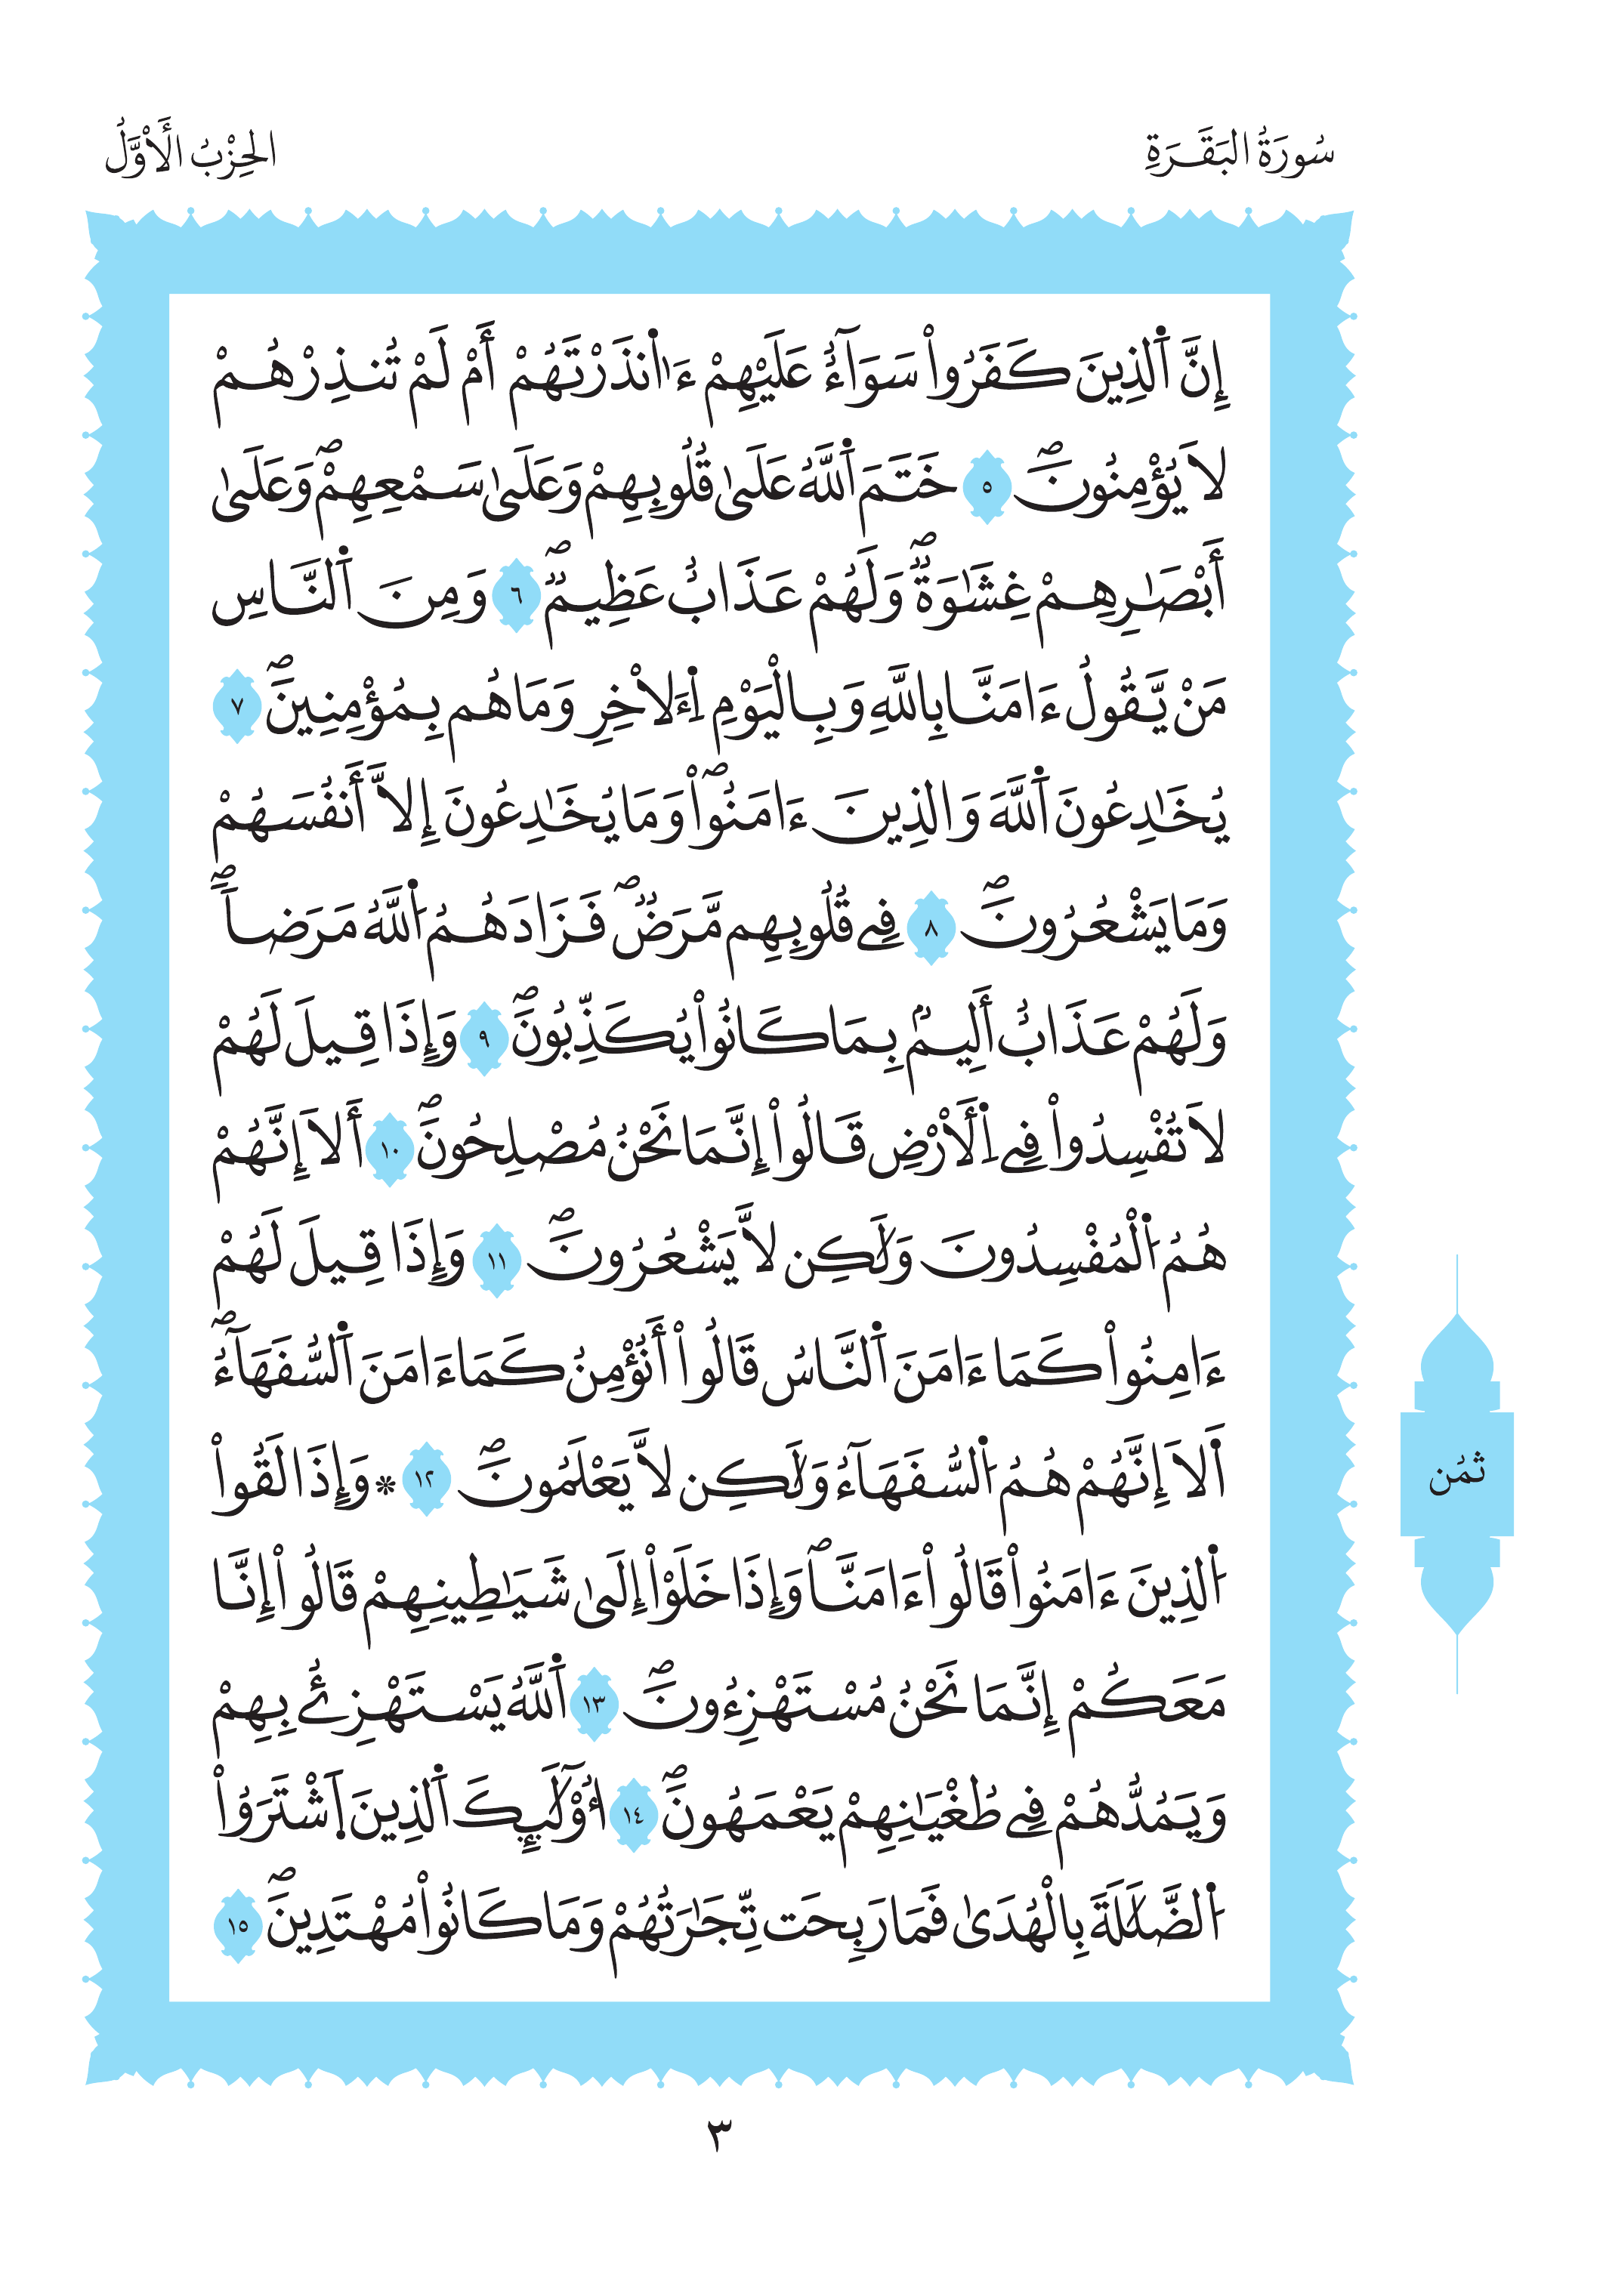 سُورَةُ البَقَرَةِ
الحِزْبُ الَأوَّلُ
إِنَّ اَ۬لذِينَ كَفَرُواْ سَوَآءٌ عَلَيْهِمْ ءَآنذَرْتَهُمْ أَمْ لَمْ تُنذِرْهُمْ
لَا يُؤْمِنُونَۖ ٥ خَتَمَ اَ۬للَّهُ عَلَىٰ قُلُوبِهِمْ وَعَلَىٰ سَمْعِهِمْۖ وَعَلَىٰ
أَبْصَٰرِهِمْ غِشَٰوَةٞۖ وَلَهُمْ عَذَابٌ عَظِيمٞۖ ٦ وَمِنَ اَ۬لنَّاسِ
مَنْ يَّقُولُ ءَامَنَّا بِاللَّهِ وَبِالْيَوْمِ اِ۬لَاخِرِ وَمَا هُم بِمُؤْمِنِينَۖ ٧
يُخَٰدِعُونَ اَ۬للَّهَ وَالذِينَ ءَامَنُواْۖ وَمَا يُخَٰدِعُونَ إِلَّا أَنفُسَهُمْ
وَمَا يَشْعُرُونَۖ ٨ فِے قُلُوبِهِم مَّرَضٞۖ فَزَادَهُمُ اُ۬للَّهُ مَرَضاٗۖ
وَلَهُمْ عَذَابٌ أَلِيمُۢ بِمَا كَانُواْ يُكَذِّبُونَۖ ٩ وَإِذَا قِيلَ لَهُمْ
لَا تُفْسِدُواْ فِے اِ۬لَأرْضِ قَالُواْ إِنَّمَا نَحْنُ مُصْلِحُونَۖ ١٠ أَلَا إِنَّهُمْ
هُمُ اُ۬لْمُفْسِدُونَ وَلَٰكِن لَّا يَشْعُرُونَۖ ١١ وَإِذَا قِيلَ لَهُمْ
ءَامِنُواْ كَمَا ءَامَنَ اَ۬لنَّاسُ قَالُواْ أَنُؤْمِنُ كَمَا ءَامَنَ اَ۬لسُّفَهَآءُۖ
أَلَا إِنَّهُمْ هُمُ اُ۬لسُّفَهَآءُ وَلَٰكِن لَّا يَعْلَمُونَۖ ١٢ * وَإِذَا لَقُواْ
اُ۬لذِينَ ءَامَنُواْ قَالُواْ ءَامَنَّاۖ وَإِذَا خَلَوْاْ إِلَىٰ شَيَٰطِينِهِمْ قَالُواْ إِنَّا
مَعَكُمْ إِنَّمَا نَحْنُ مُسْتَهْزِءُونَۖ ١٣ اَ۬للَّهُ يَسْتَهْزِئُ بِهِمْ
وَيَمُدُّهُمْ فِے طُغْيَٰنِهِمْ يَعْمَهُونَۖ ١٤ أُوْلَٰٓئِكَ اَ۬لذِينَ اَ۪شْتَرَوُاْ
اُ۬لضَّلَٰلَةَ بِالْهُدَىٰ فَمَا رَبِحَت تِّجَٰرَتُهُمْ وَمَا كَانُواْ مُهْتَدِينَۖ ١٥
ثمُن
٣